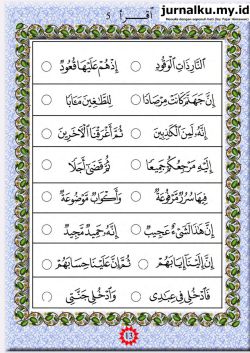 jurnalku.my.id
اقرأ ٥
النَّارِ ذَاتِ الْوَقُودِ ○ إِذْ هُمْ عَلَيْهَا قُعُودٌ ○
إِنَّ جَهَنَّمَ كَانَتْ مِرْصَادًا ○ لِلطَّاغِينَ مَآبًا ○
إِنَّهُ لَمِنَ الْكَاذِبِينَ ○ ثُمَّ أَغْرَقْنَا الْآخَرِينَ ○
إِلَيْهِ مَرْجِعُكُمْ جَمِيعًا ○ ثُمَّ قَضَىٰ أَجَلًا ○
فِيهَا سُرُرٌ مَرْفُوعَةٌ ○ وَأَكْوَابٌ مَوْضُوعَةٌ ○
إِنَّ هَٰذَا لَشَيْءٌ عَجِيبٌ ○ إِنَّهُ حَمِيدٌ مَجِيدٌ ○
إِنَّ إِلَيْنَا إِيَابَهُمْ ○ ثُمَّ إِنَّ عَلَيْنَا حِسَابَهُمْ ○
فَادْخُلِي فِي عِبَادِي ○ وَادْخُلِي جَنَّتِي ○
13